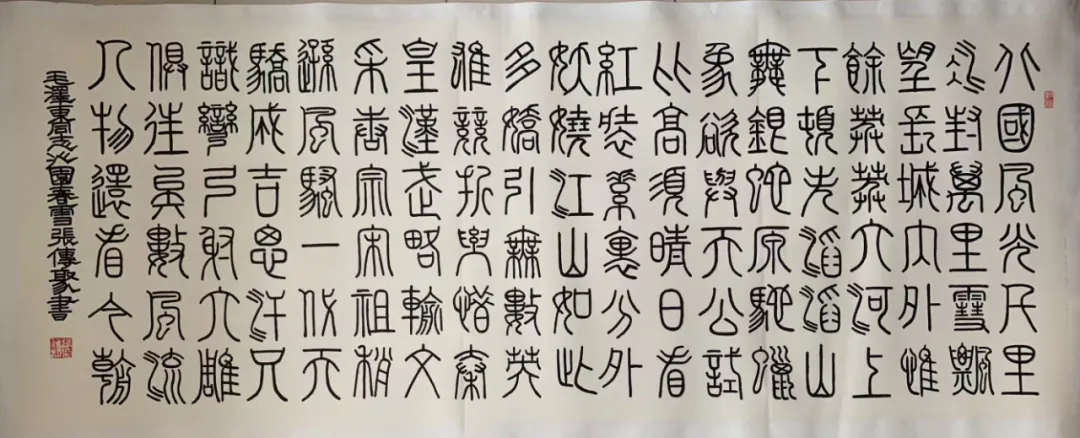 北國風光千里
冰封萬里雪飄
望長城內外惟
餘莽莽大河上
下頓失滔滔山
舞銀蛇原馳蠟
象欲與天公試
比高須晴日看
紅裝素裹分外
妖嬈江山如此
多嬌引無數英
雄競折腰惜秦
皇漢武略輸文
采唐宗宋祖稍
遜風騷一代天
驕成吉思汗只
識彎弓射大雕
俱往矣數風流
人物還看今朝
毛澤東沁園春雪張傳聚書